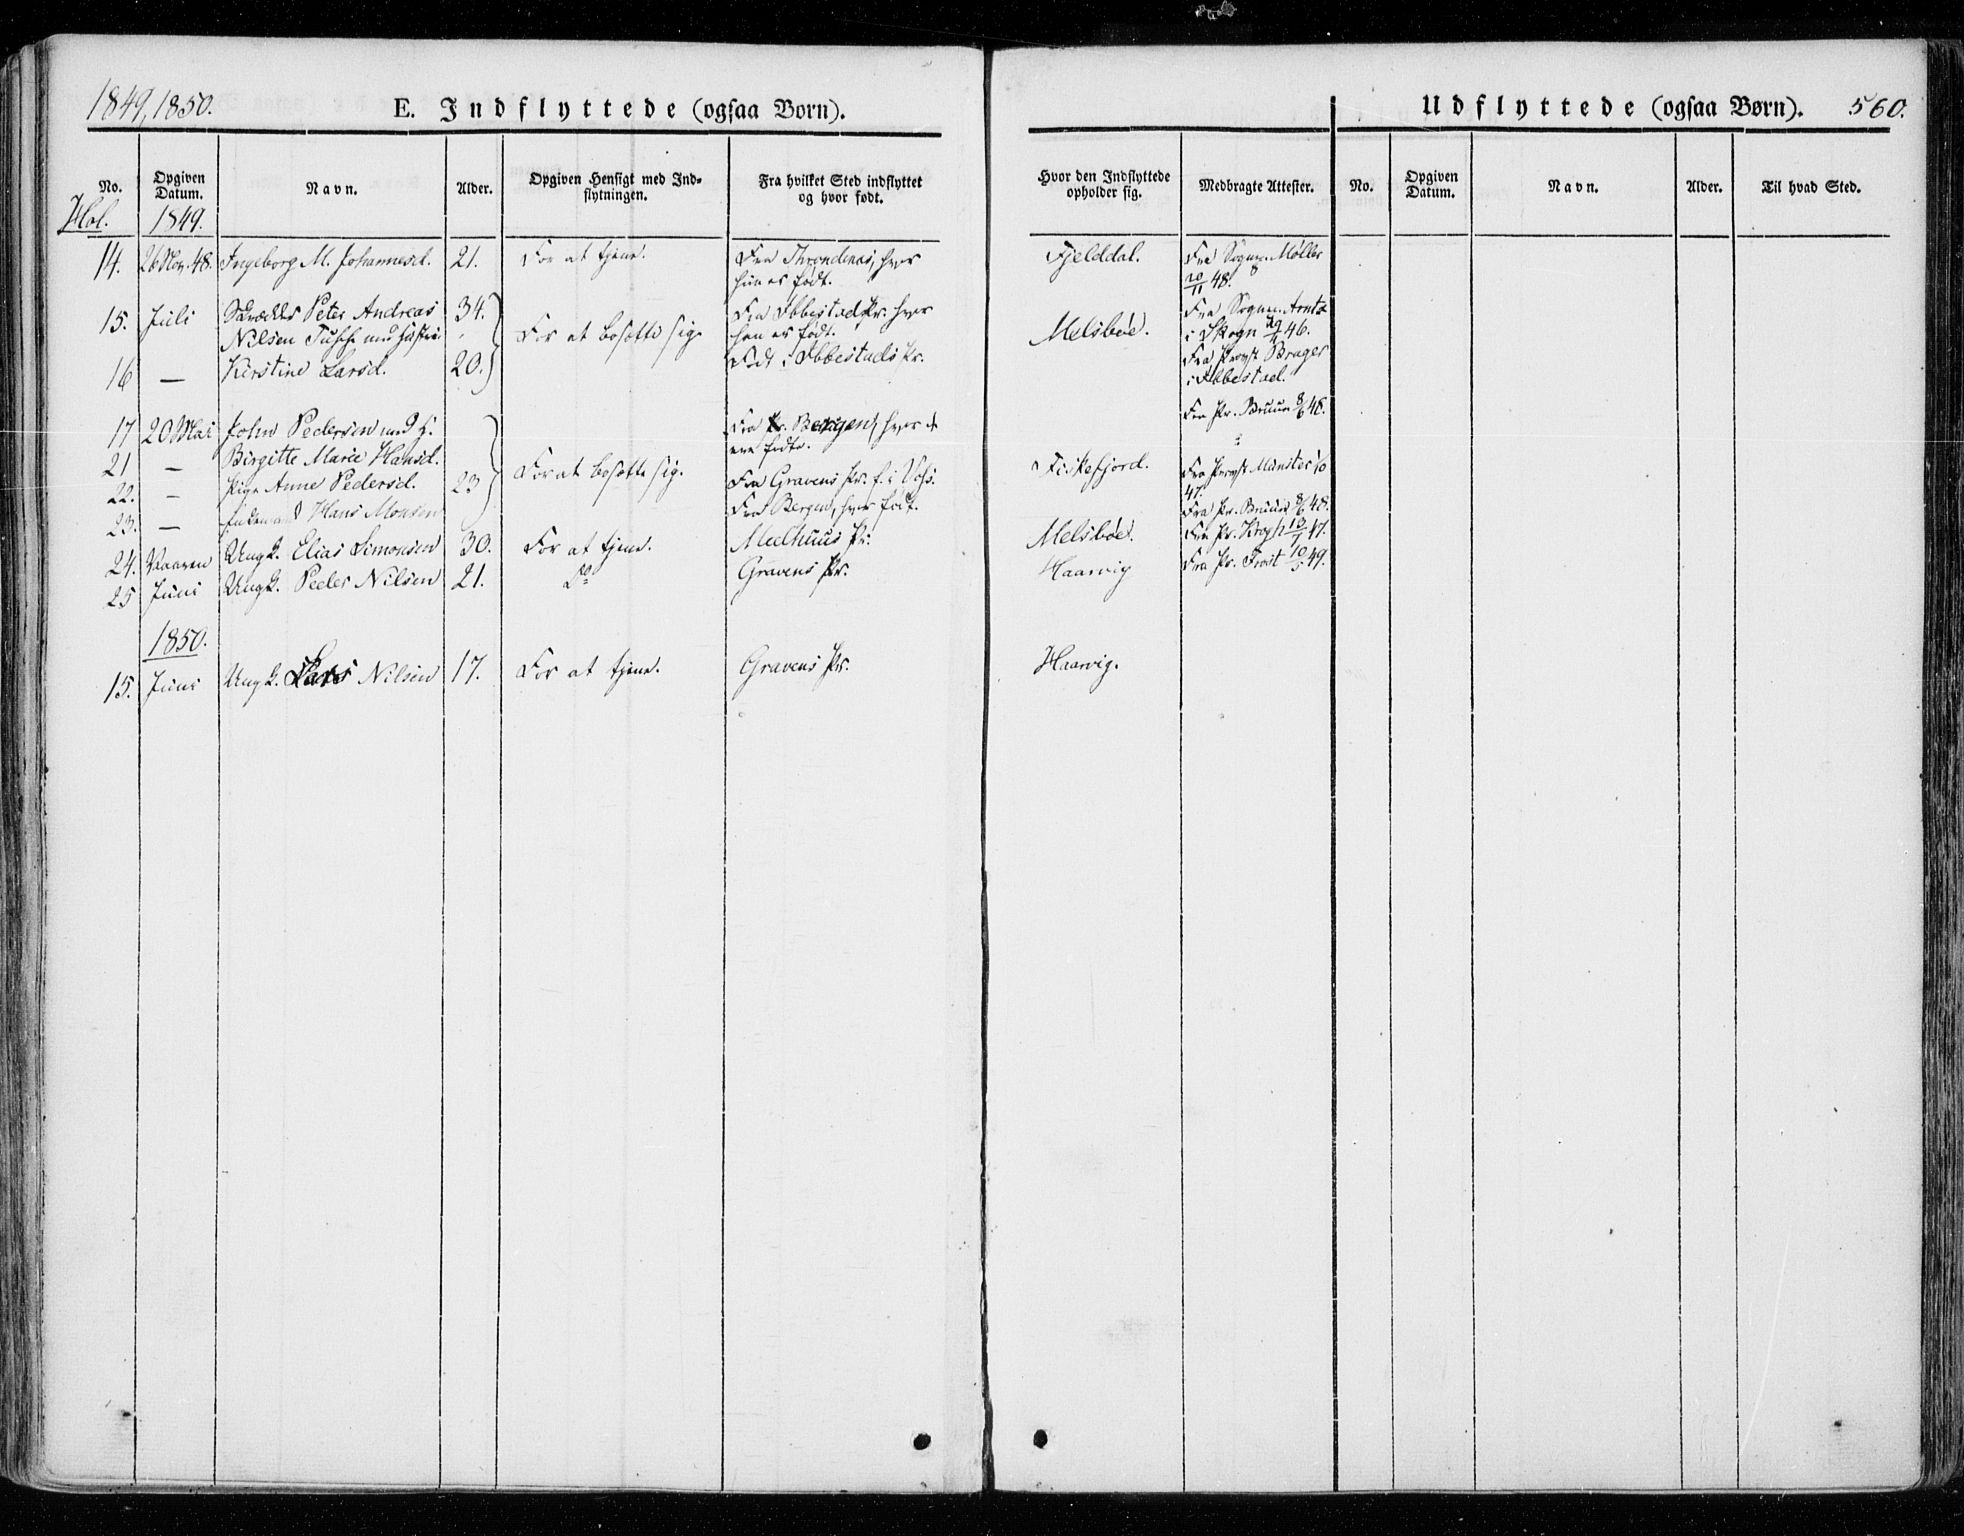 1849, 1850.
E. Indflyttede (ogsaa Børn).
Udflyttede (ogsaa Børn). 560.
No. Opgiven Datum. Navn. Alder. Opgiven Hensigt med Indflytningen. Fra hvilket Sted indflyttet og hvor født. Hvor den Indflyttede opholder sig. Medbragte Attester. No. Opgiven Datum. Navn. Alder. Til hvad Sted.
Hol. 1849.
14. 26 Nov. 48. Ingeborg M. Johannesd. 21. For at tjene. Fra Throndenæs, hvor Fjelddal. Fra Sogn. Møller
hun er født. 20/11 48.
15. Juli Peter Andreas 34. Fra Ibbestad Pr. hvor Fra Sogn.
Nilsen med Hustru For at bosætte sig. han er født. Melsbøe. i Skogn 46.
16 — Kirstine Larsd. 20. Født i Ibbestads Pr. Fra Provst Brager
i Ibbestad.
17 20 Mai John Pedersen med H. Fra Bergen, hvor de Fra Pr. Bruun 8/6 48.
21 — Birgitte Marie Hansd. ere fødte.
22. — Pige Anne Pedersd. 23 For at bosætte sig. Fra Gravens Pr. f. i Vos. Fiskefjord. Fra Provst Munster
47.
23. — Hans Monsen Fra Bergen, hvor født. Fra Pr. Bruun 8/6 48.
24. Vaaren Ungk. Elias Simonsen 30. For at tjene. Meelhuus Pr. Melsbøe. Fra Pr. Krogh 47.
25 Juni Ungk. Peder Nilsen 21. Do Gravens Pr. Haarvig Fra Pr. 49.
1850.
15. Juni Ungk. Lars Nilsen 17. For at tjene. Gravens Pr. Haarvig.